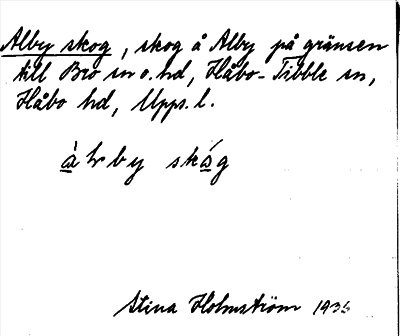 Alby skog, skog å Alby på gränsen
till Bro sn o. hd, Håbo-Tibble sn,
Håbo hd, Upps. l.
ská̲g
Stina Holmström 1936